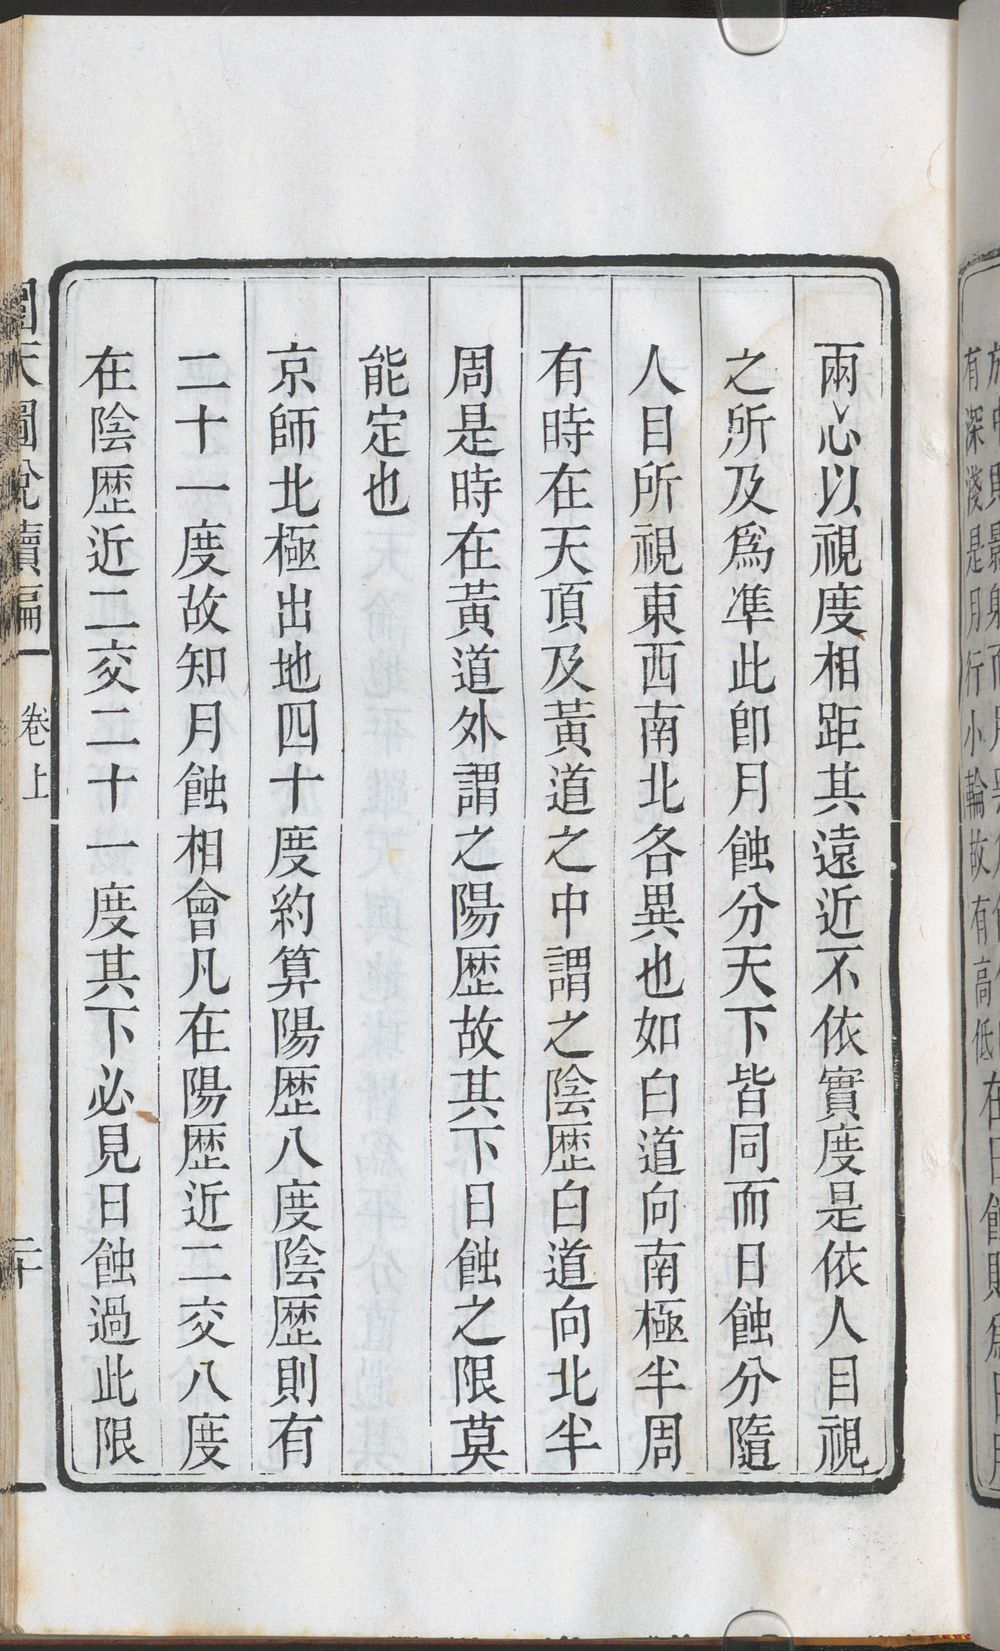 兩心以視度相距其遠近不依實度是依人目視
之所及爲準此卽月蝕分天下皆同而日蝕分隨
人目所視東西南北各異也如白道向南極半周
有時在天頂及黃道之中謂之陰歷白道向北半
周是時在黃道外謂之陽歷故其下日蝕之限莫
能定也
京師北極出地四十度約算陽歷八度陰歷則有
二十一度故知月蝕相會凡在陽歷近二交八度
在陰歷近二交二十一度其下必見日蝕過此限
圜天圖說續編 卷上 二十
有深淺是月行小輪故有高低